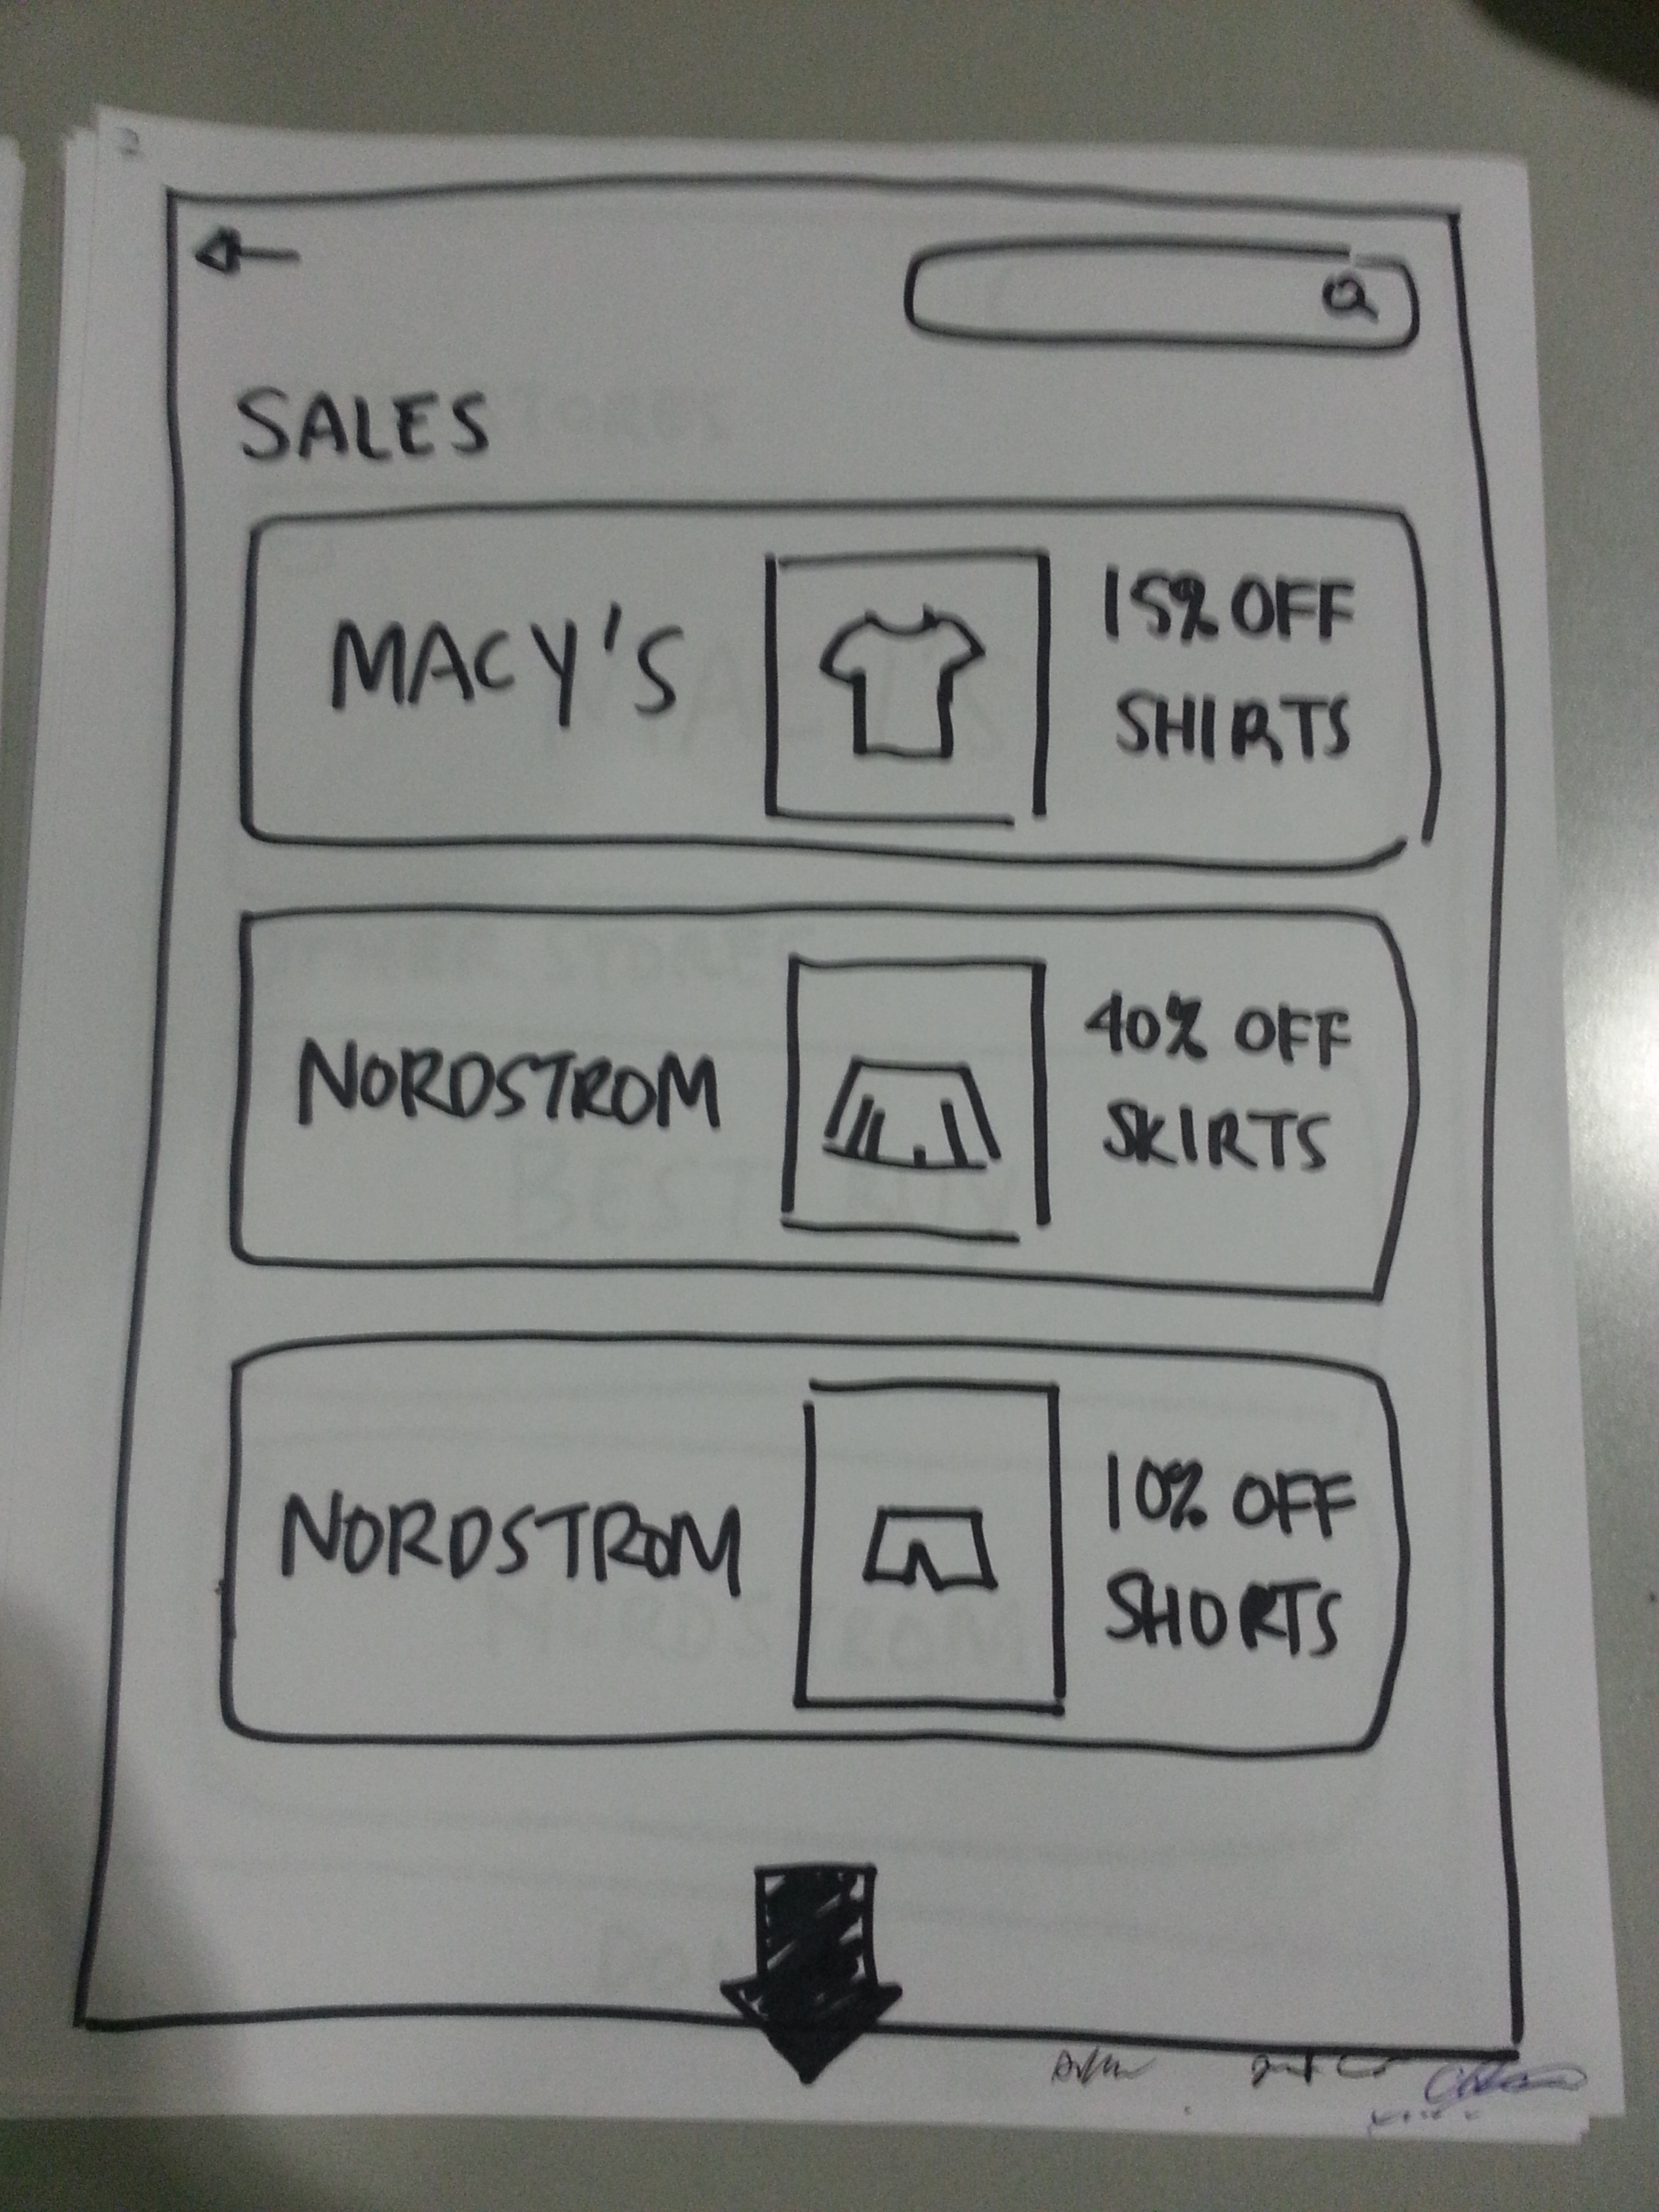 2
SALES
MACY'S
15% OFF
SHIRTS
NORDSTROM
40% OFF
SKIRTS
NORDSTROM
10% OFF
SHORTS